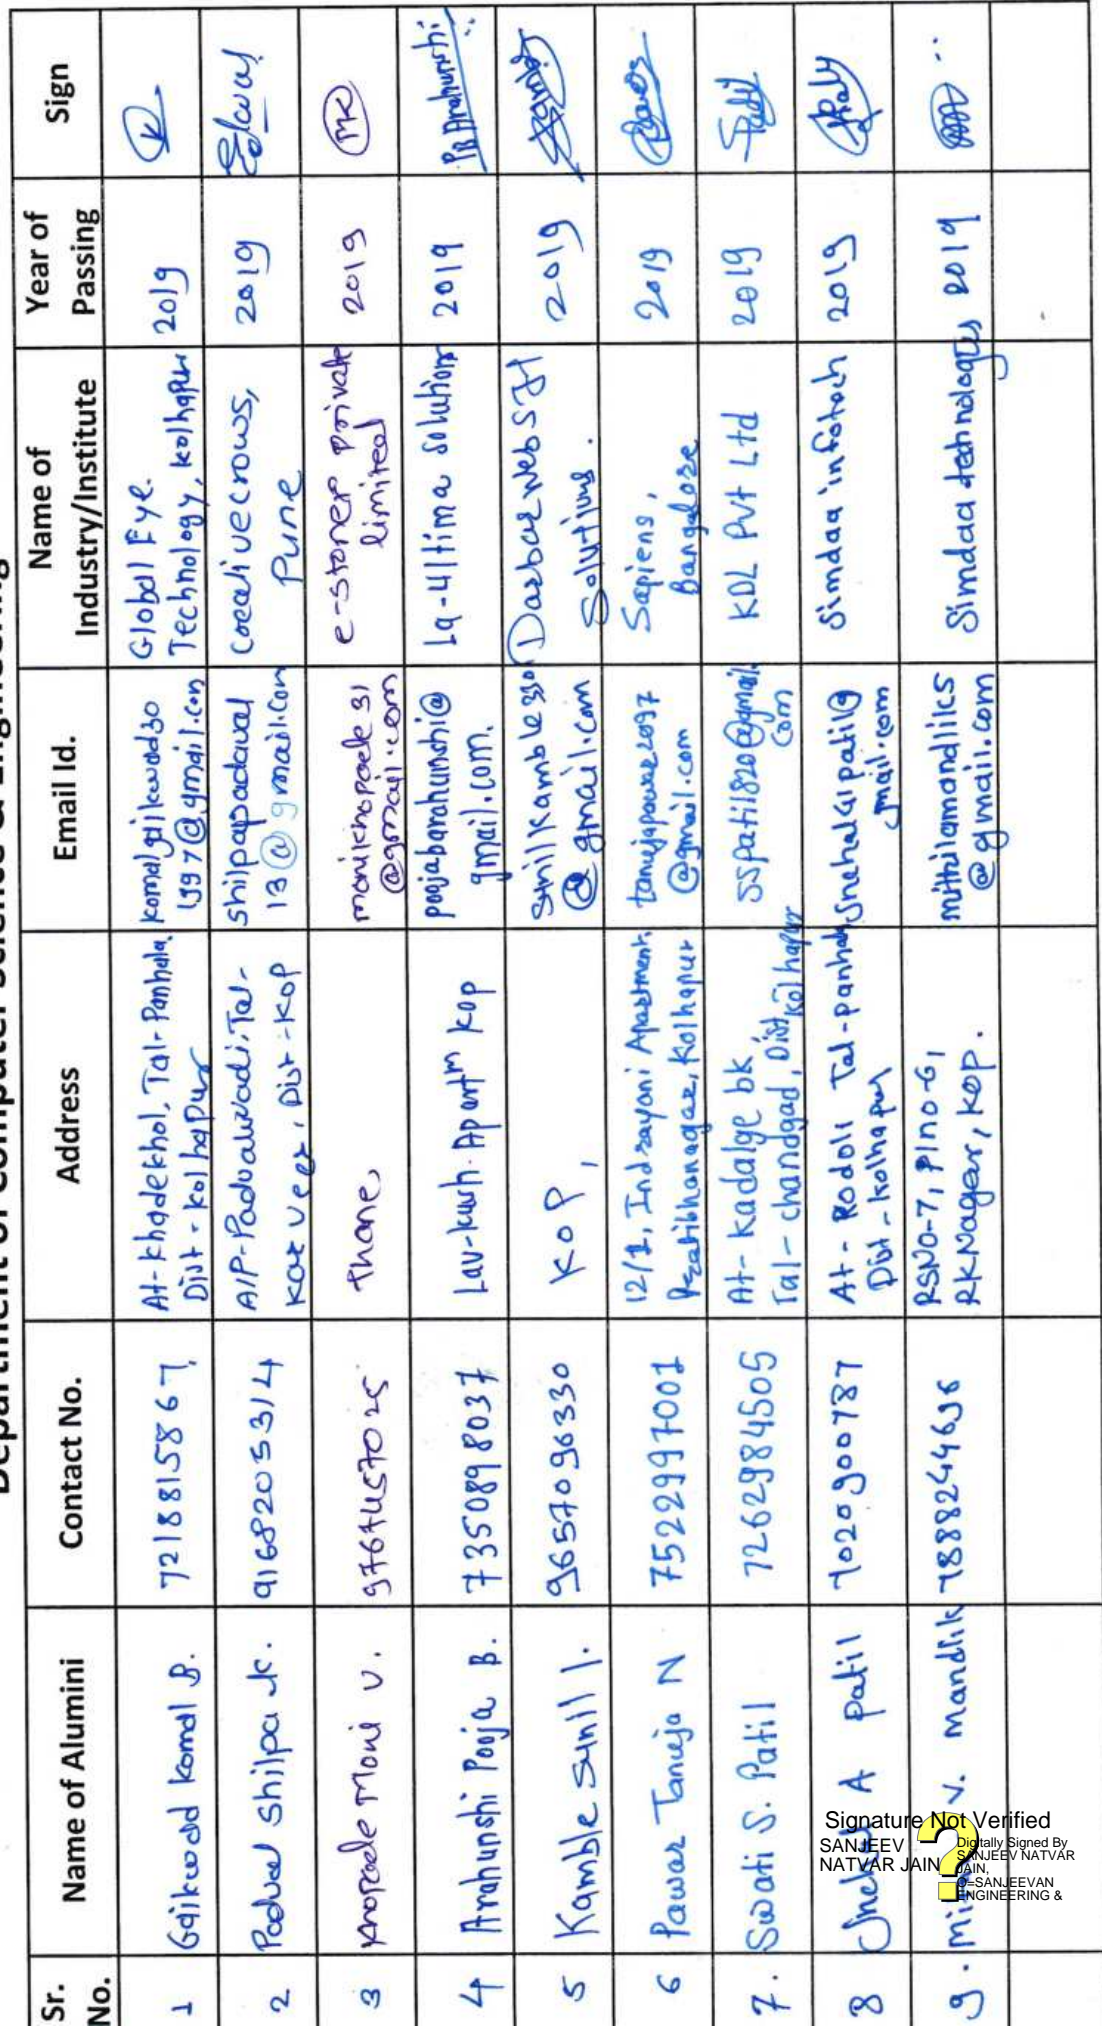 Department of Computer Science & Engineering
Sr. No. Name of Alumini Contact No. Address Email Id. Name of Industry/Institute Year of Passing Sign
1 Gaikwad Komal B. 7218815867 At-Khadekhol, Tal-Panhala, Dist-Kolhapur komalgaikwad30 1997@gmail.com Global Eye Technology, Kolhapur 2019
2 Padval Shilpa K. 9168205314 A/P-Padvalwadi, Tal-Karveer, Dist-Kop shilpapadaval 13@gmail.com Creativecrows, Pune 2019
3 Khopade Moni V. 9764457025 Thane monikhopade31 @gmail.com e-stoner private limited 2019
4 Arahunshi Pooja B. 7350898037 Lav-kush Apartm Kop poojabarahunshi@ gmail.com. La-Ultima solutions 2019 PBArahunshi
5 Kamble Sunil I. 9657096330 KOP, sunilkamble330 @gmail.com Darbar Websoft Solutions. 2019
6 Pawar Tanuja N 7522997001 12/1, Indrayani Apartment, Pratibhanagar, Kolhapur tanujapawar2097 @gmail.com Sapiens, Bangalore 2019
7. Swati S. Patil 7262984505 At-Kadalge bk Tal-chandgad, Dist Kolhapur sspatil1820@gmail. com KDL Pvt Ltd 2019 Patil
8 Snehal A patil 7020900787 At-Rodoli Tal-panhala Dist-kolhapur SnehalGipatil@ gmail.com Simdaa infotech 2019
9. v. Mandlik 7888244698 RSNO-7, Plno-6, RKNagar, Kop. mithilamandlics @gmail.com Simdaa technologies 2019
Signature Not Verified
SANJEEV
NATVAR JAIN
Digitally Signed By
SANJEEV NATVAR
JAIN,
O=SANJEEVAN
ENGINEERING &